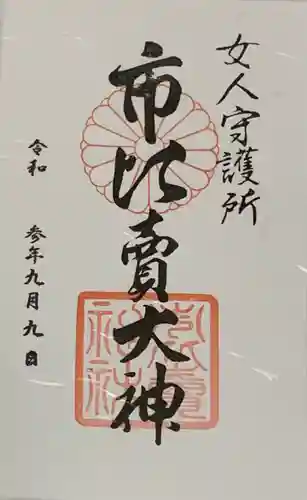 女人守護所
市比賣大神
令和 参年九月九日